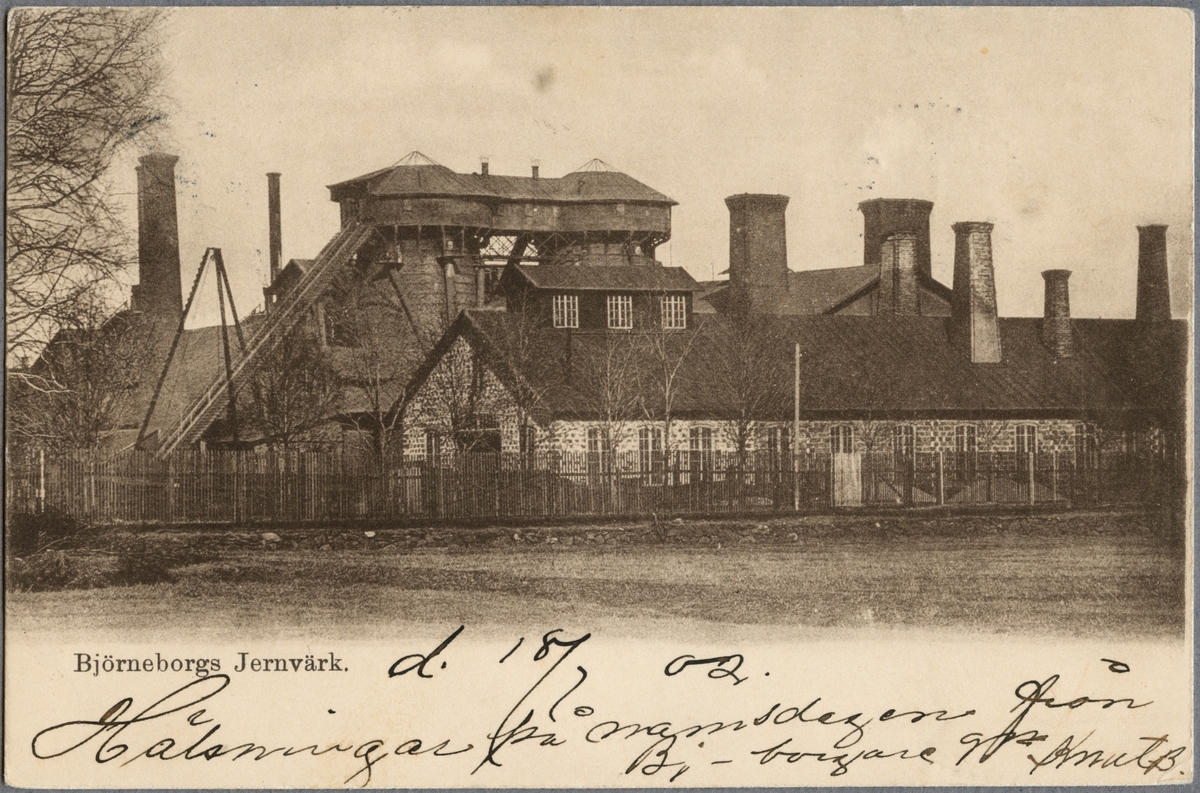 Björneborgs Jernvärk.
d. 18/7 02.
Hälsningar på namnsdagen från
Bj-borgare Knut B.